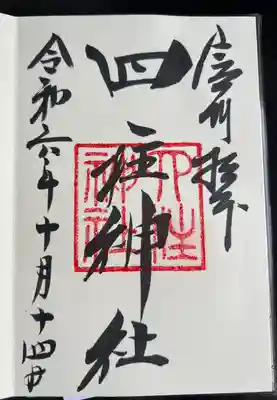 信州松本
四柱神社
四柱神社
令和六年十月十四日